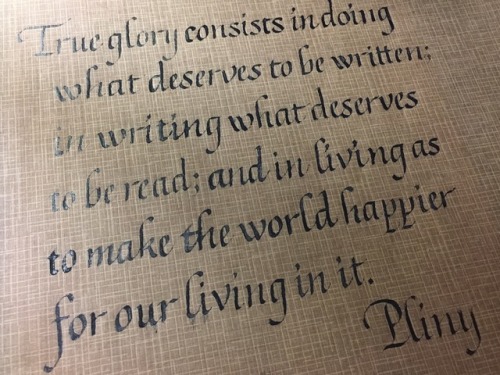 True glory consists in doing
what deserves to be written;
in writing what deserves
to be read; and in living as
to make the world happier
for our living in it.
Pliny